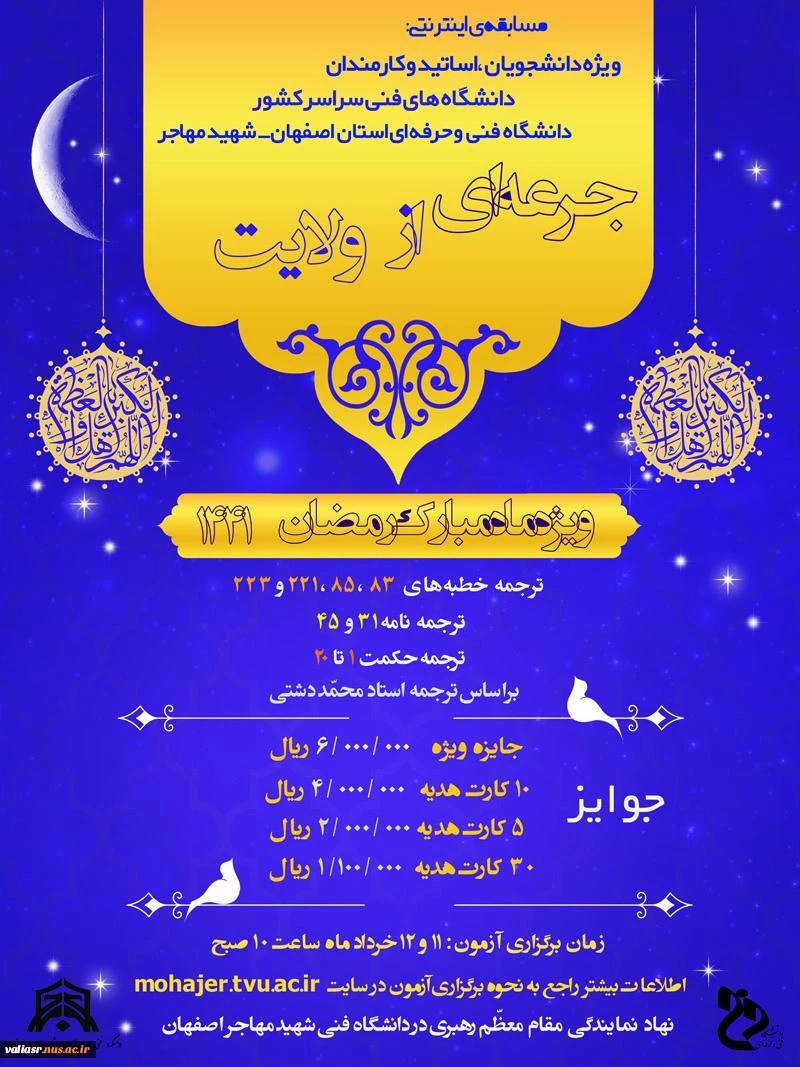 مسابقه‌ی اینترنتی:
ویژه دانشجویان، اساتید و کارمندان
دانشگاه های فنی سراسر کشور
دانشگاه فنی وحرفه‌ای استان اصفهان_ شهید مهاجر
جرعه‌ای از ولایت
ویژه ماه مبارک رمضان ۱۴۴۱
ترجمه خطبه‌های ۸۳، ۸۵، ۲۲۱ و ۲۲۳
ترجمه نامه ۳۱ و ۴۵
ترجمه حکمت ۱ تا ۲۰
براساس ترجمه استاد محمّد دشتی
جوایز
جایزه ویژه ۶/۰۰۰/۰۰۰ ریال
۱۰ کارت هدیه ۴/۰۰۰/۰۰۰ ریال
۵ کارت هدیه ۲/۰۰۰/۰۰۰ ریال
۳۰ کارت هدیه ۱/۱۰۰/۰۰۰ ریال
زمان برگزاری آزمون: ۱۱ و ۱۲ خرداد ماه ساعت ۱۰ صبح
اطلاعات بیشتر راجع به نحوه برگزاری آزمون در سایت mohajer.tvu.ac.ir
نهاد نمایندگی مقام معظّم رهبری در دانشگاه فنی شهید مهاجر اصفهان
valiasr.nus.ac.ir